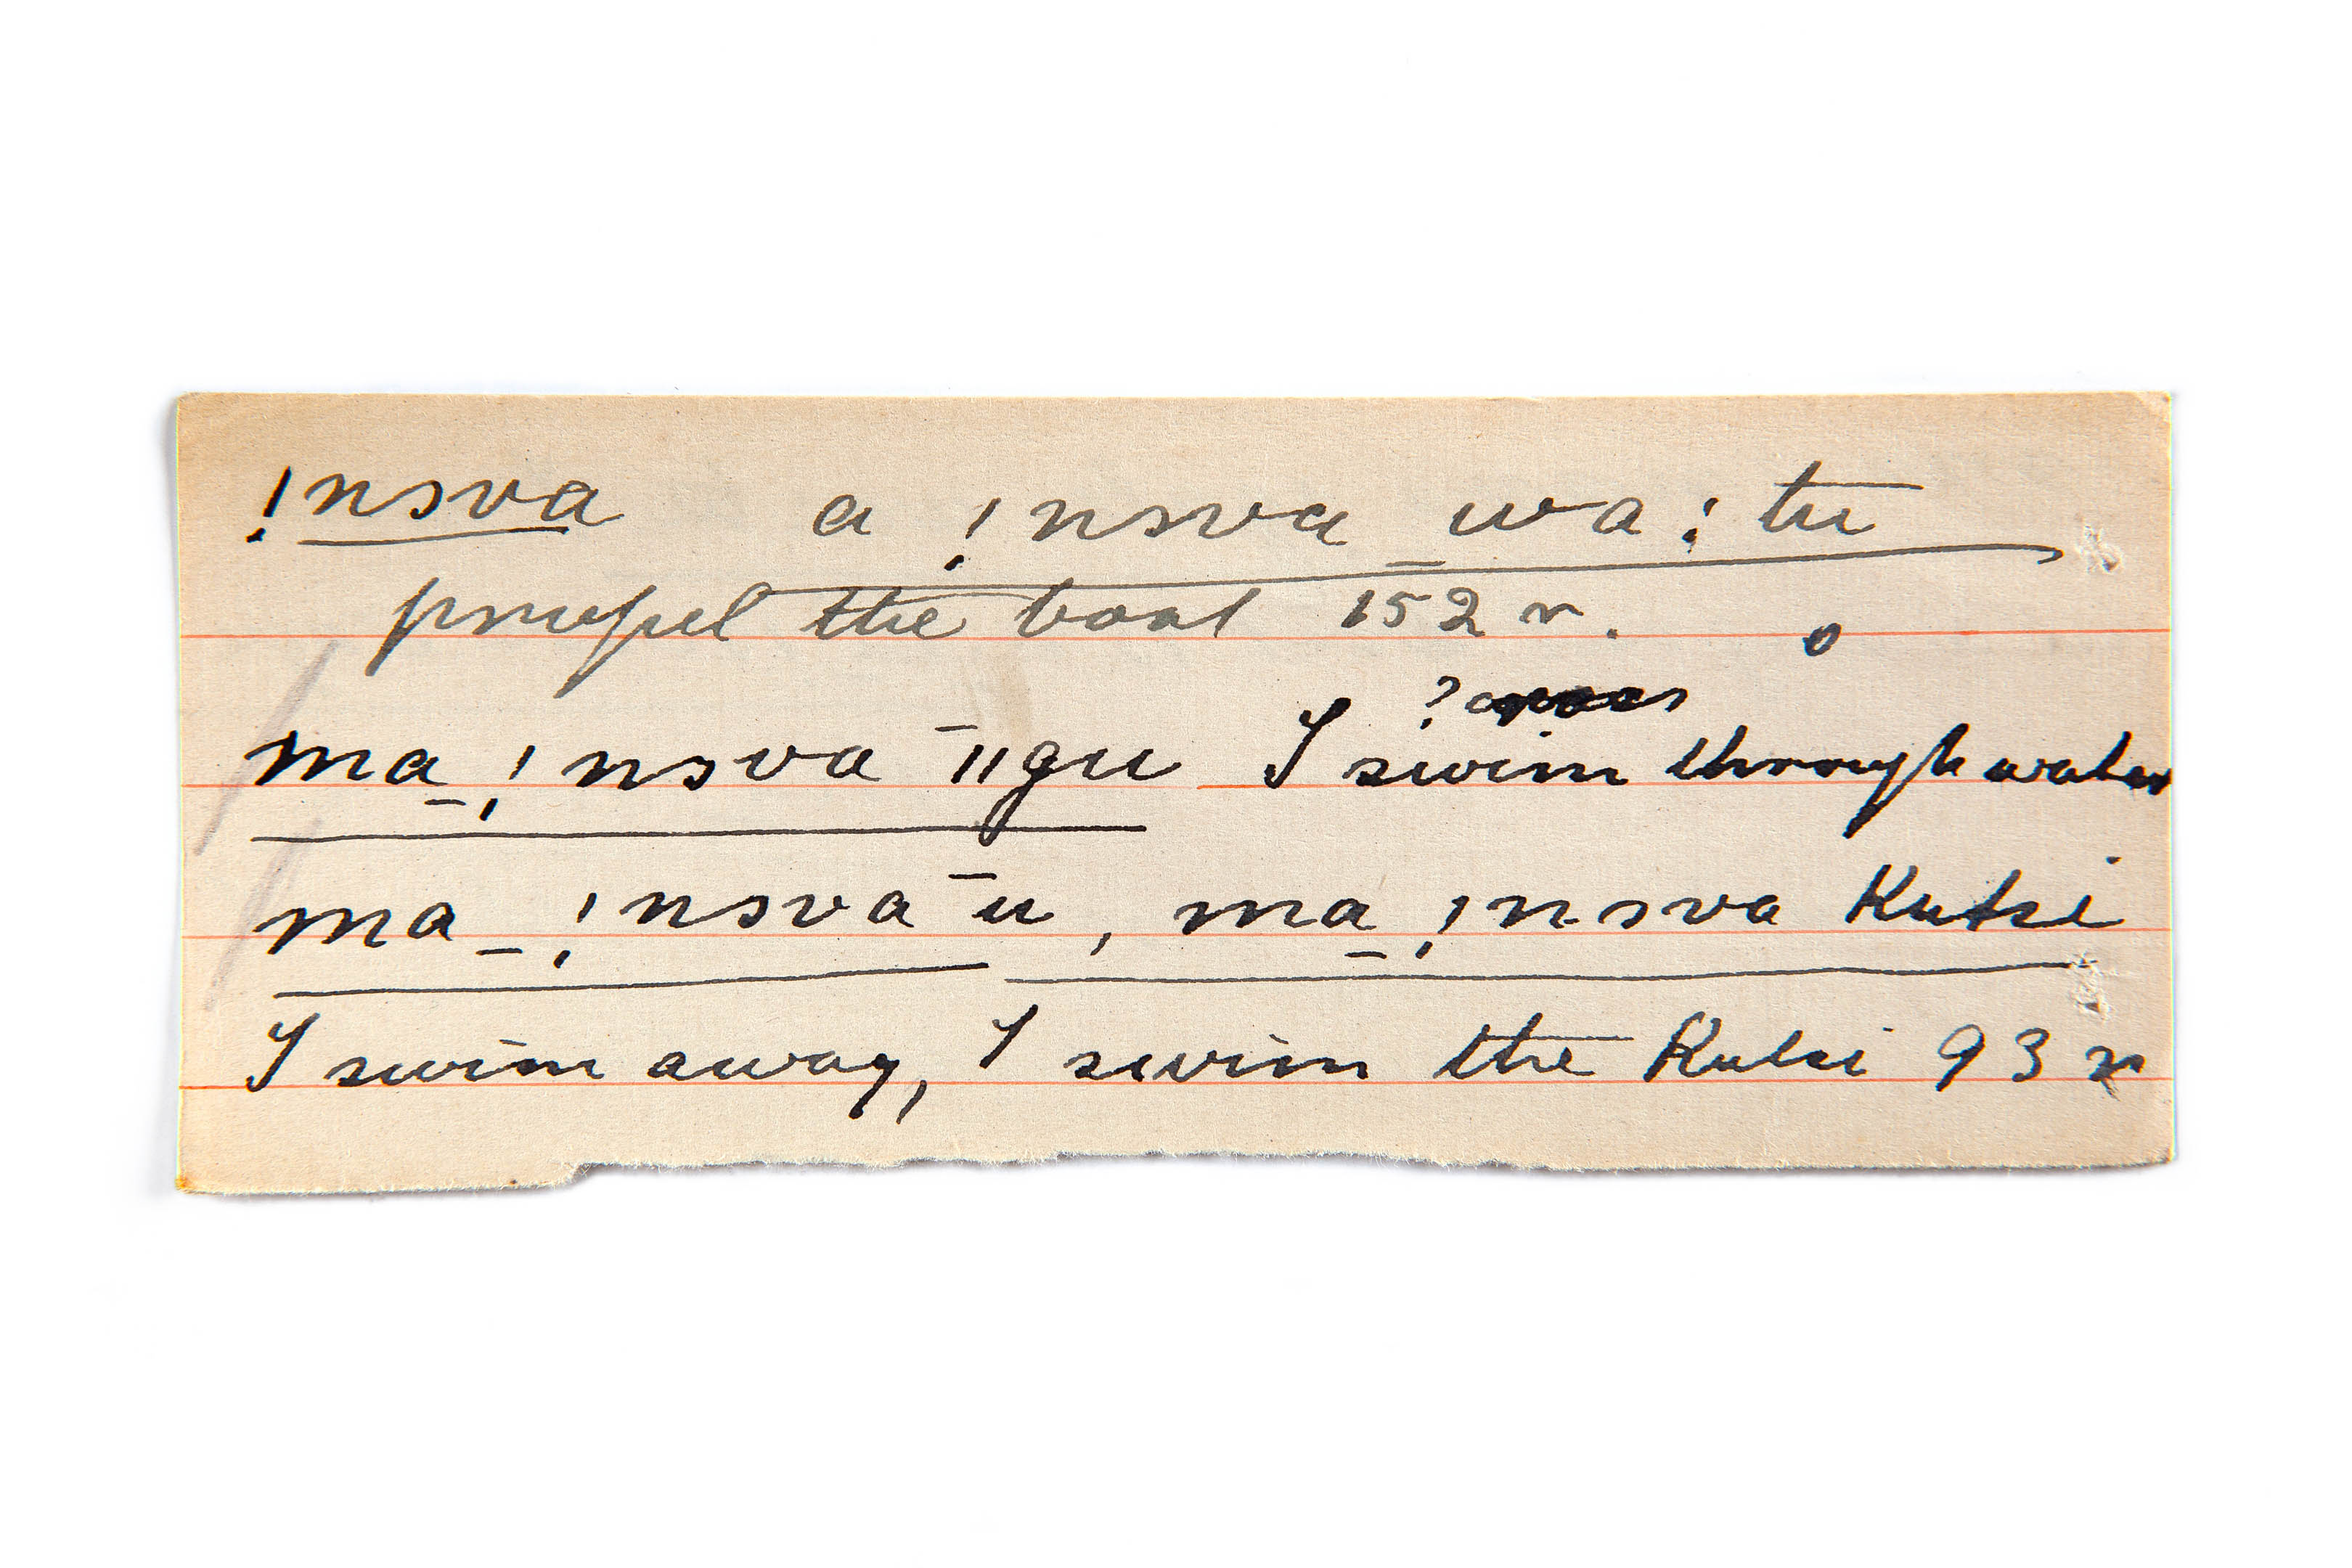 !nsva a !nsva wa:tu
propel the boat 152 r.
?
ma !nsva ‖gu I swim through water
ma !nsva u, ma !nsva Kutsi
I swim away, I swim the Kutsi 93 r